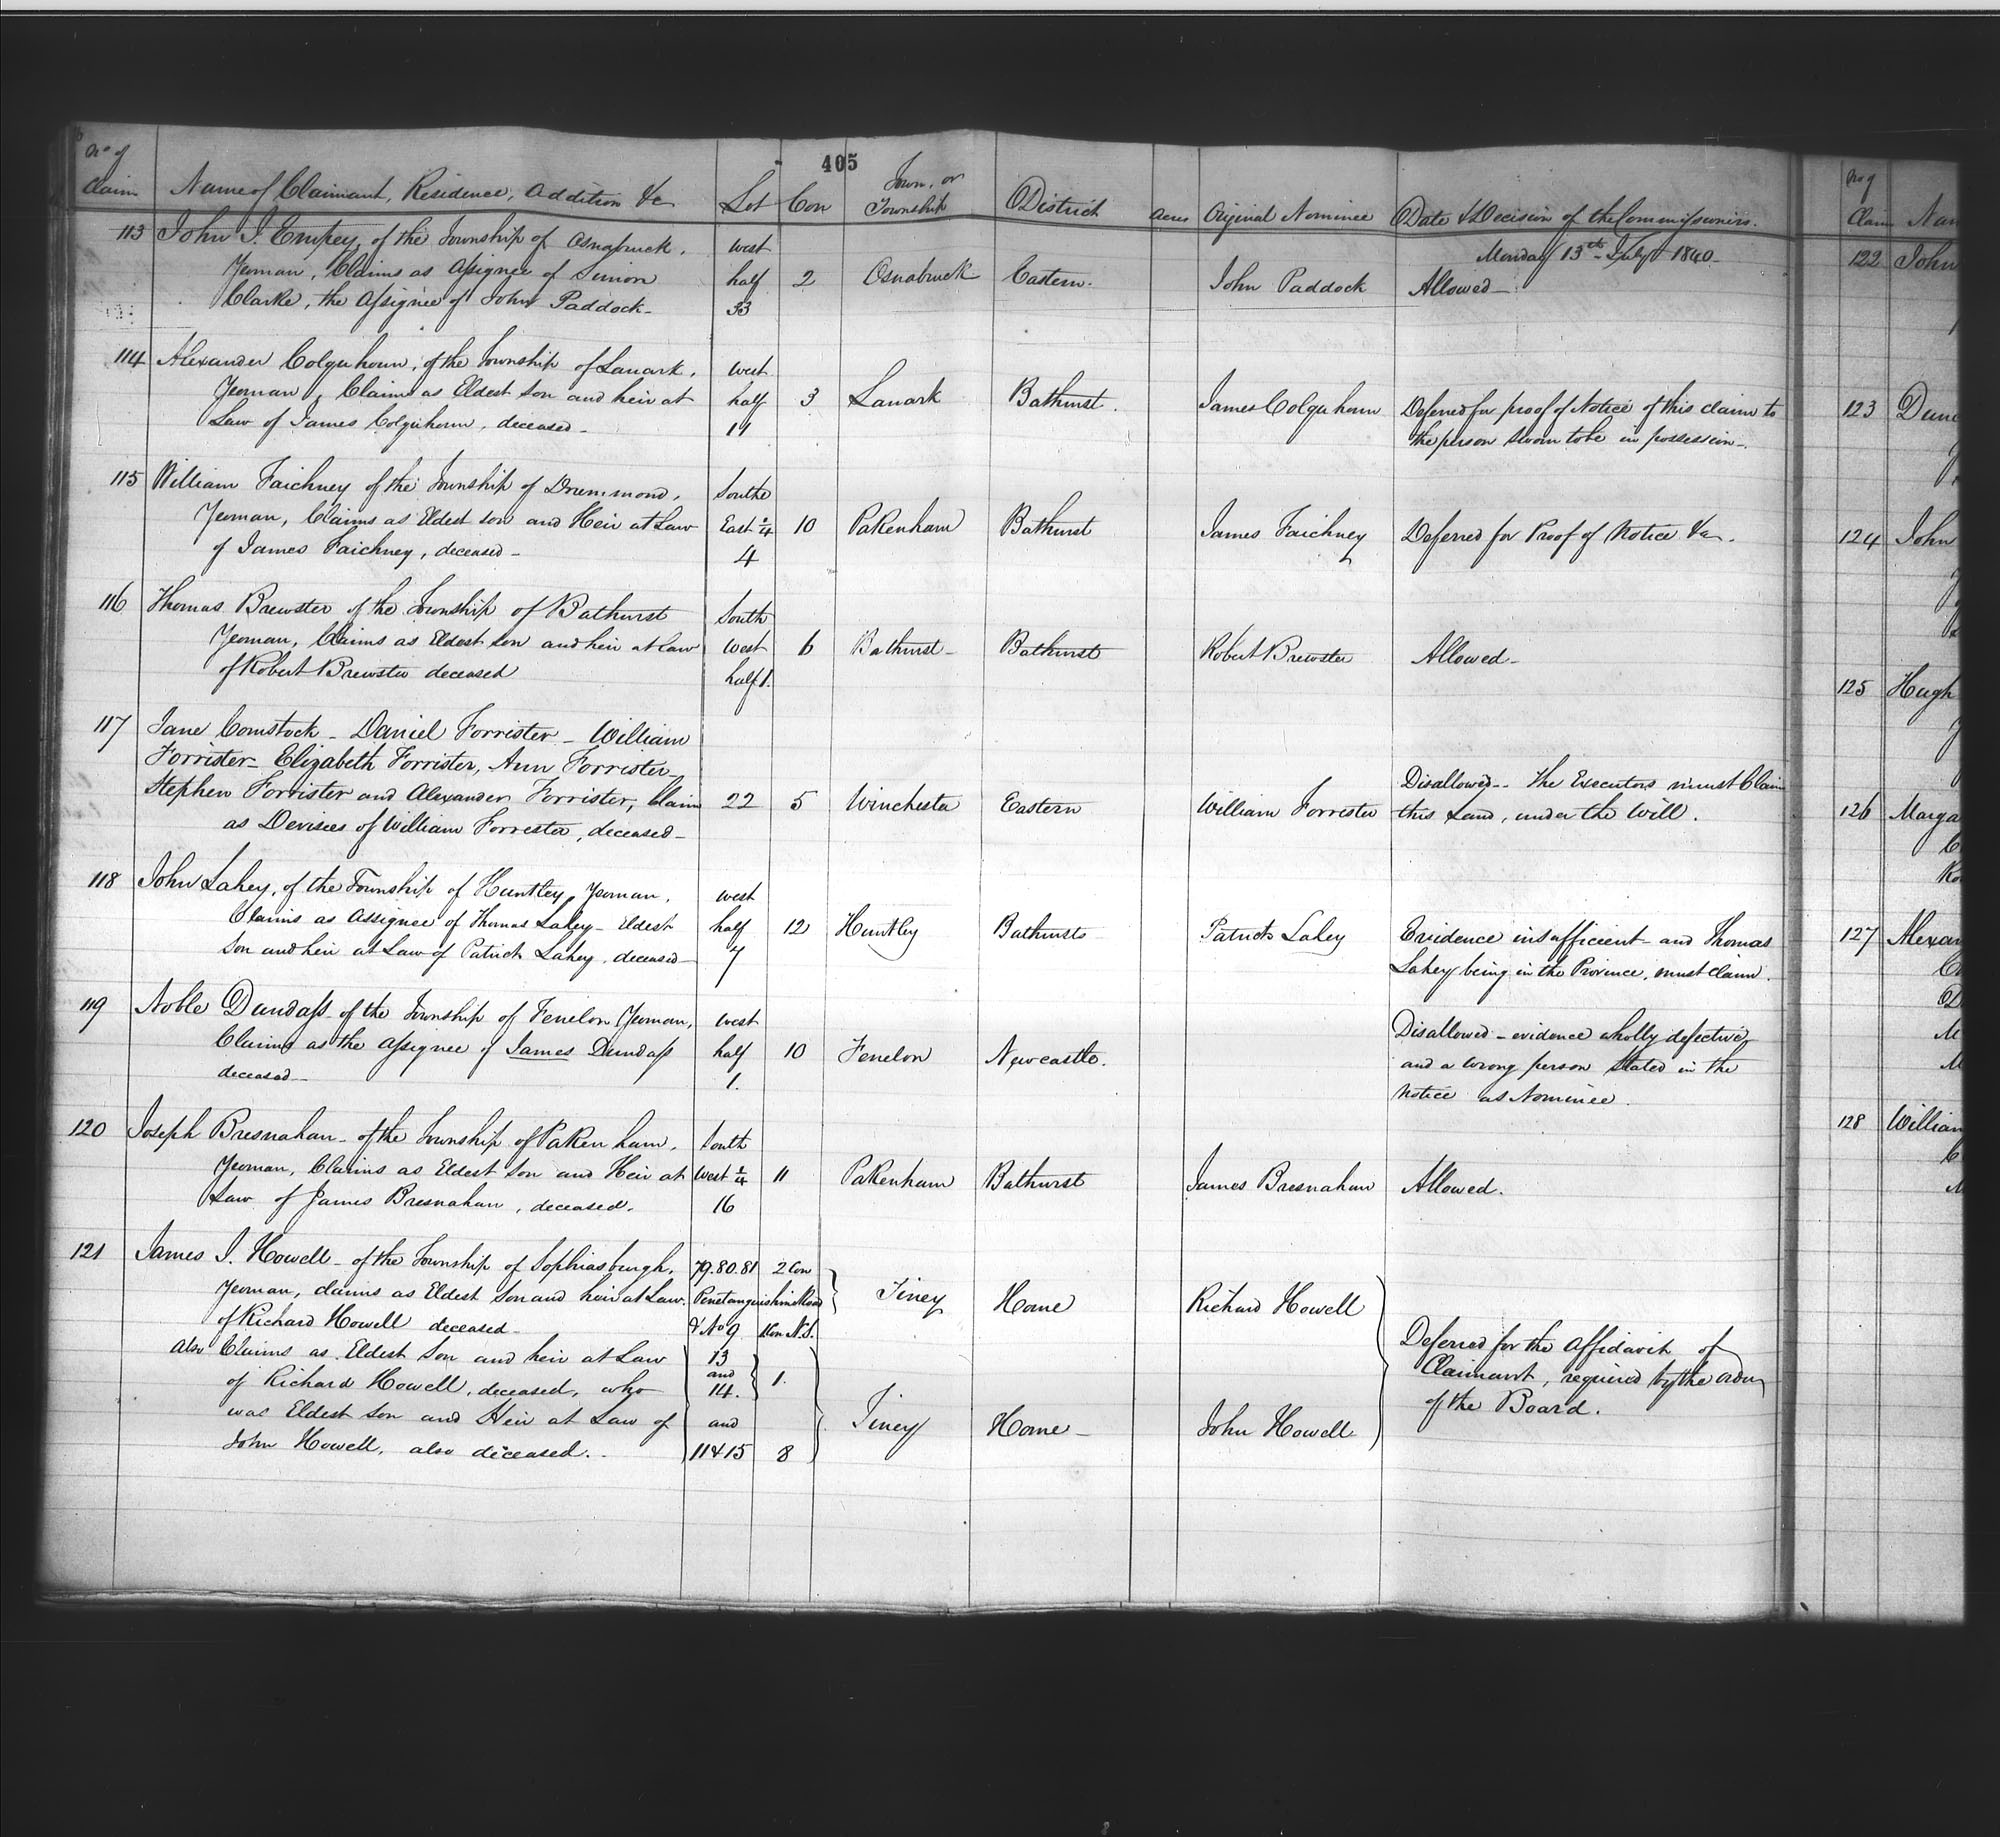 405
No of Claim Name of Claimant, Residence, Addition &c Lot Con Town, or Township District Acres Original Nominee Date & Decision of the Commissioners.
Monday 13th July 1840
113 John I. Empey, of the Township of Osnabruck,
Yeoman, Claims as Assignee of Simon
Clarke, the Assignee of John Paddock-
west
half
33
2 Osnabruck Eastern. John Paddock Allowed-
114 Alexander Colquhoun, of the Township of Lanark,
Yeoman, Claims as Eldest son and heir at
Law of James Colquhoun, deceased-
west
half
11
3 Lanark Bathurst. James Colquhoun Deferred for proof of Notice of this claim to
the person sworn to be in possession-
115 William Faichney of the Township of Drummond,
Yeoman, Claims as Eldest son and Heir at Law
of James Faichney, deceased-
South
East ¼
4
10 Pakenham Bathurst James Faichney Deferred for Proof of Notice &c.
116 Thomas Brewster of the Township of Bathurst
Yeoman, Claims as Eldest son and heir at Law
of Robert Brewster deceased
South
West
half 1.
6 Bathurst- Bathurst Robert Brewster Allowed-
117 Jane Comstock - Daniel Forrister - William
Forrister- Elizabeth Forrister, Ann Forrister-
Stephen Forrister and Alexander Forrister, Claim
as Devisees of William Forrester, deceased-
22 5 Winchester Eastern William Forrister Disallowed-- The Executors must Claim
this Land, under the Will.
118 John Lahey, of the Township of Huntley, Yeoman,
Claims as Assignee of Thomas Lahey- Eldest
son and heir at Law of Patrick Lahey, deceased-
west
half
7
12 Huntley Bathurst Patrick Lahey Evidence insufficient- and Thomas
Lahey being in the Province, must claim.
119 Noble Dundass- of the Township of Fenelon Yeoman,
Claims as the Assignee of James Dundass
deceased-
west
half
1.
10 Fenelon Newcastle. Disallowed- evidence wholly defective,
and a wrong person stated in the
Notice as Nominee.
120 Joseph Bresnahan- of the Township of Pakenham,
Yeoman, Claims as Eldest Son and Heir at
Law of James Bresnahan, deceased.
South
West ¼
16
11 Pakenham Bathurst James Bresnahan Allowed.
121 James I. Howell- of the Township of Sophiasburgh,
Yeoman, claims as Eldest Son and heir at Law
of Richard Howell deceased-
79.80.81 2 Con
Penetanguishine Road
& No 9 1 Con N.S.
Tiney Home Richard Howell
also Claims as Eldest Son and heir at Law
of Richard Howell, deceased, who
was Eldest Son and Heir at Law of
John Howell, also deceased.
13
and
14. 1.
and
11&15 8
Tiney Home- John Howell
Deferred for the Affidavit of
Claimant, required by the order
of the Board.
No of Claim Nam
122 John
123 Dunc
124 John
125 Hugh
126 Marga
127 Alexan
128 William